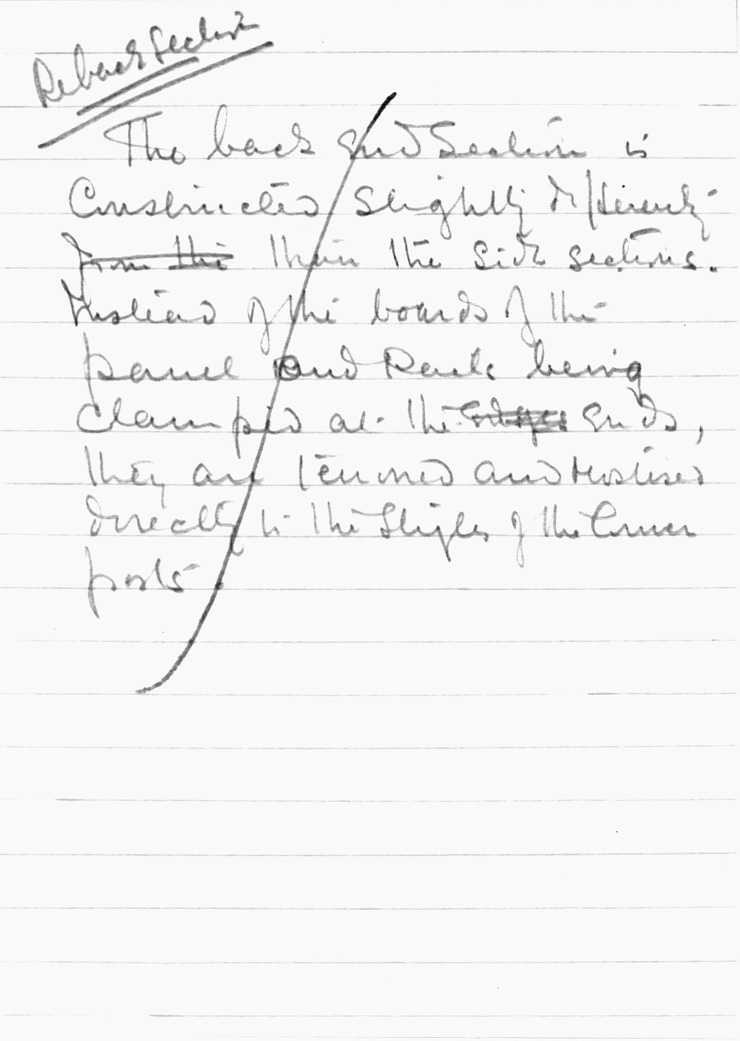 Re back section
The back end section is
constructed slightly differently
from the than the side sections.
Instead of the boards of the
panel and being
clamped at the edges ends,
they are tenoned and mortised
directly to the stiles of the corner
posts.